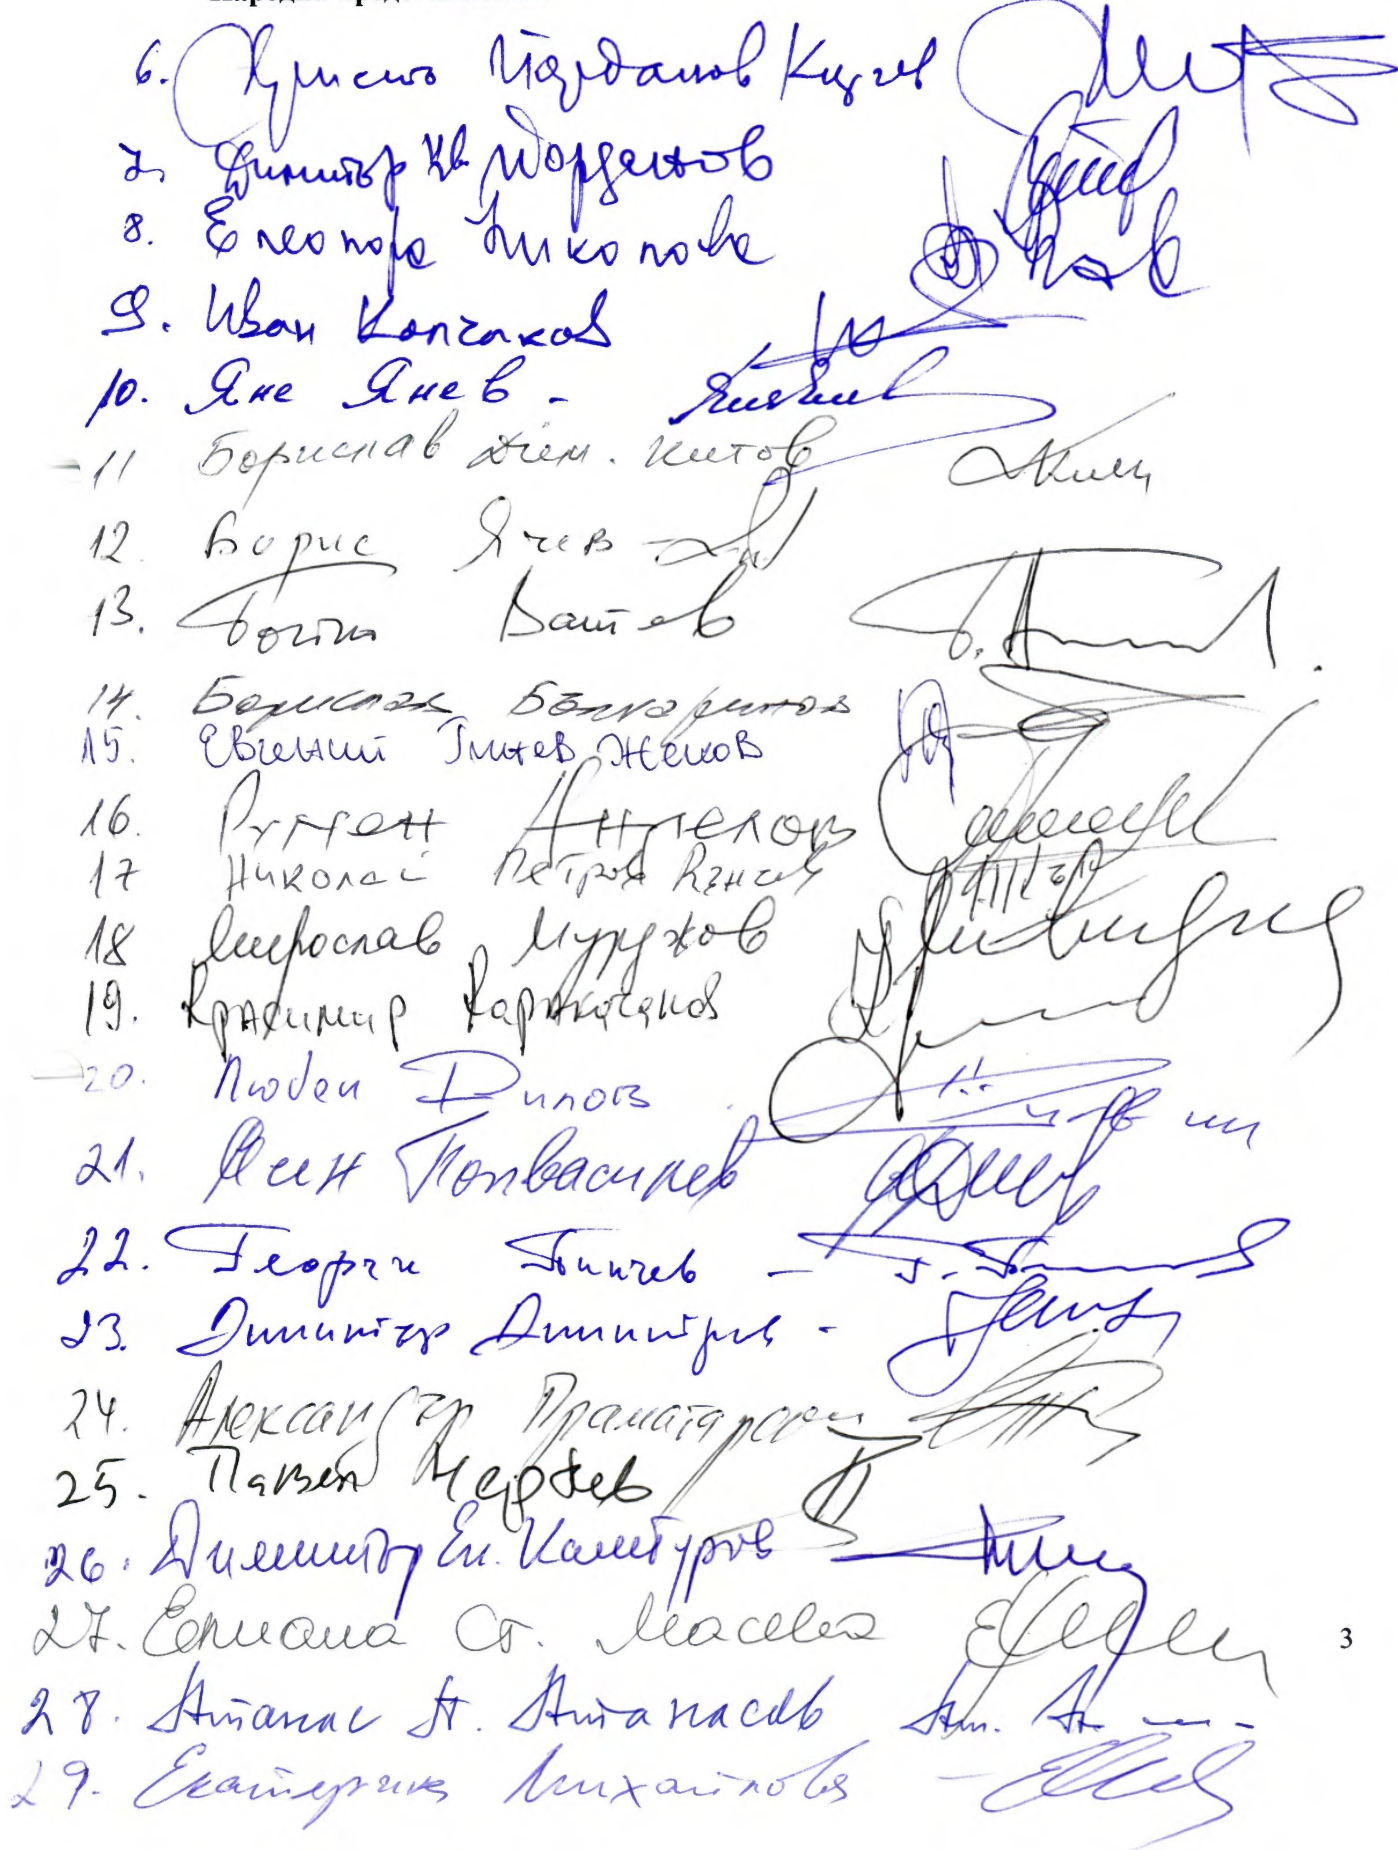 6. Христо Йорданов Кирчев
7. Димитър Ив. Йорданов
8. Елеонора Николова
9. Иван Колчаков
10. Яне Янев -
11 Борислав Дим. Китов
12. Борис Ячев -
13. Ботьо Ватев
14. Борислав Българинов
15. Евгений Гинев Жеков
16. Румен Ангелов
17 Николай Петров Кънчев
18 Мирослав Мурджов
19. Красимир Каракачанов
20. Любен Дилов
21. Яни Попвасилев
22. Георги Пинчев -
23. Димитър Димитров -
24. Александър Праматарски
25. Павел Чернев
26. Димитър Ен. Камбуров
27. Елиана Ст. Масева
3
28. Атанас Ат. Атанасов
29. Екатерина Михайлова